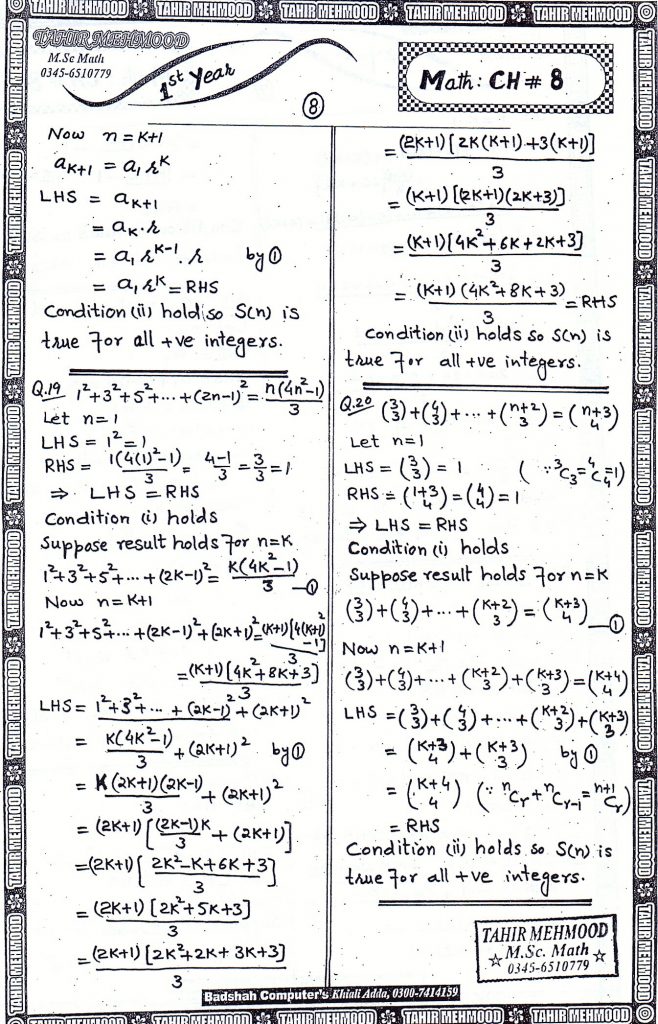 TAHIR MEHMOOD TAHIR MEHMOOD TAHIR MEHMOOD TAHIR MEHMOOD TAHIR MEHMOOD
TAHIR MEHMOOD
M.Sc Math
0345-6510779
1st Year
8
Math: CH # 8
Now n = K+1
a_{K+1} = a₁ r^K
LHS = a_{K+1}
= a_K . r
= a₁ r^{K-1} . r by ①
= a₁ r^K = RHS
Condition (ii) hold so S(n) is
true for all +ve integers.
Q.19 1²+3²+5²+...+(2n-1)² = n(4n²-1)/3
Let n=1
LHS = 1² = 1
RHS = 1(4(1)²-1)/3 = 4-1/3 = 3/3 = 1
⇒ LHS = RHS
Condition (i) holds
Suppose result holds for n=K
1²+3²+5²+...+(2K-1)² = K(4K²-1)/3 —①
Now n=K+1
1²+3²+5²+...+(2K-1)²+(2K+1)² = (K+1)[4(K+1)²-1]/3
= (K+1)[4K²+8K+3]/3
LHS = 1²+3²+...+(2K-1)²+(2K+1)²
= K(4K²-1)/3 + (2K+1)² by ①
= K(2K+1)(2K-1)/3 + (2K+1)²
= (2K+1)[(2K-1)K/3 + (2K+1)]
= (2K+1)[2K²-K+6K+3/3]
= (2K+1)[2K²+5K+3]/3
= (2K+1)[2K²+2K+3K+3]/3
= (2K+1)[2K(K+1)+3(K+1)]/3
= (K+1)[(2K+1)(2K+3)]/3
= (K+1)[4K²+6K+2K+3]/3
= (K+1)(4K²+8K+3)/3 = RHS
Condition (ii) holds so S(n) is
true for all +ve integers.
Q.20 (3 3)+(4 3)+...+(n+2 3) = (n+3 4)
Let n=1
LHS = (3 3) = 1 (∵ ³C₃=⁴C₄=1)
RHS = (1+3 4) = (4 4) = 1
⇒ LHS = RHS
Condition (i) holds
Suppose result holds for n=K
(3 3)+(4 3)+...+(K+2 3) = (K+3 4) —①
Now n=K+1
(3 3)+(4 3)+...+(K+2 3)+(K+3 3) = (K+4 4)
LHS = (3 3)+(4 3)+...+(K+2 3)+(K+3 3)
= (K+3 4)+(K+3 3) by ①
= (K+4 4) (∵ ⁿCr+ⁿCr-1=ⁿ⁺¹Cr)
= RHS
Condition (ii) holds so S(n) is
true for all +ve integers.
TAHIR MEHMOOD
M.Sc. Math
0345-6510779
Badshah Computer's Khiali Adda, 0300-7414159
TAHIR MEHMOOD TAHIR MEHMOOD TAHIR MEHMOOD TAHIR MEHMOOD TAHIR MEHMOOD